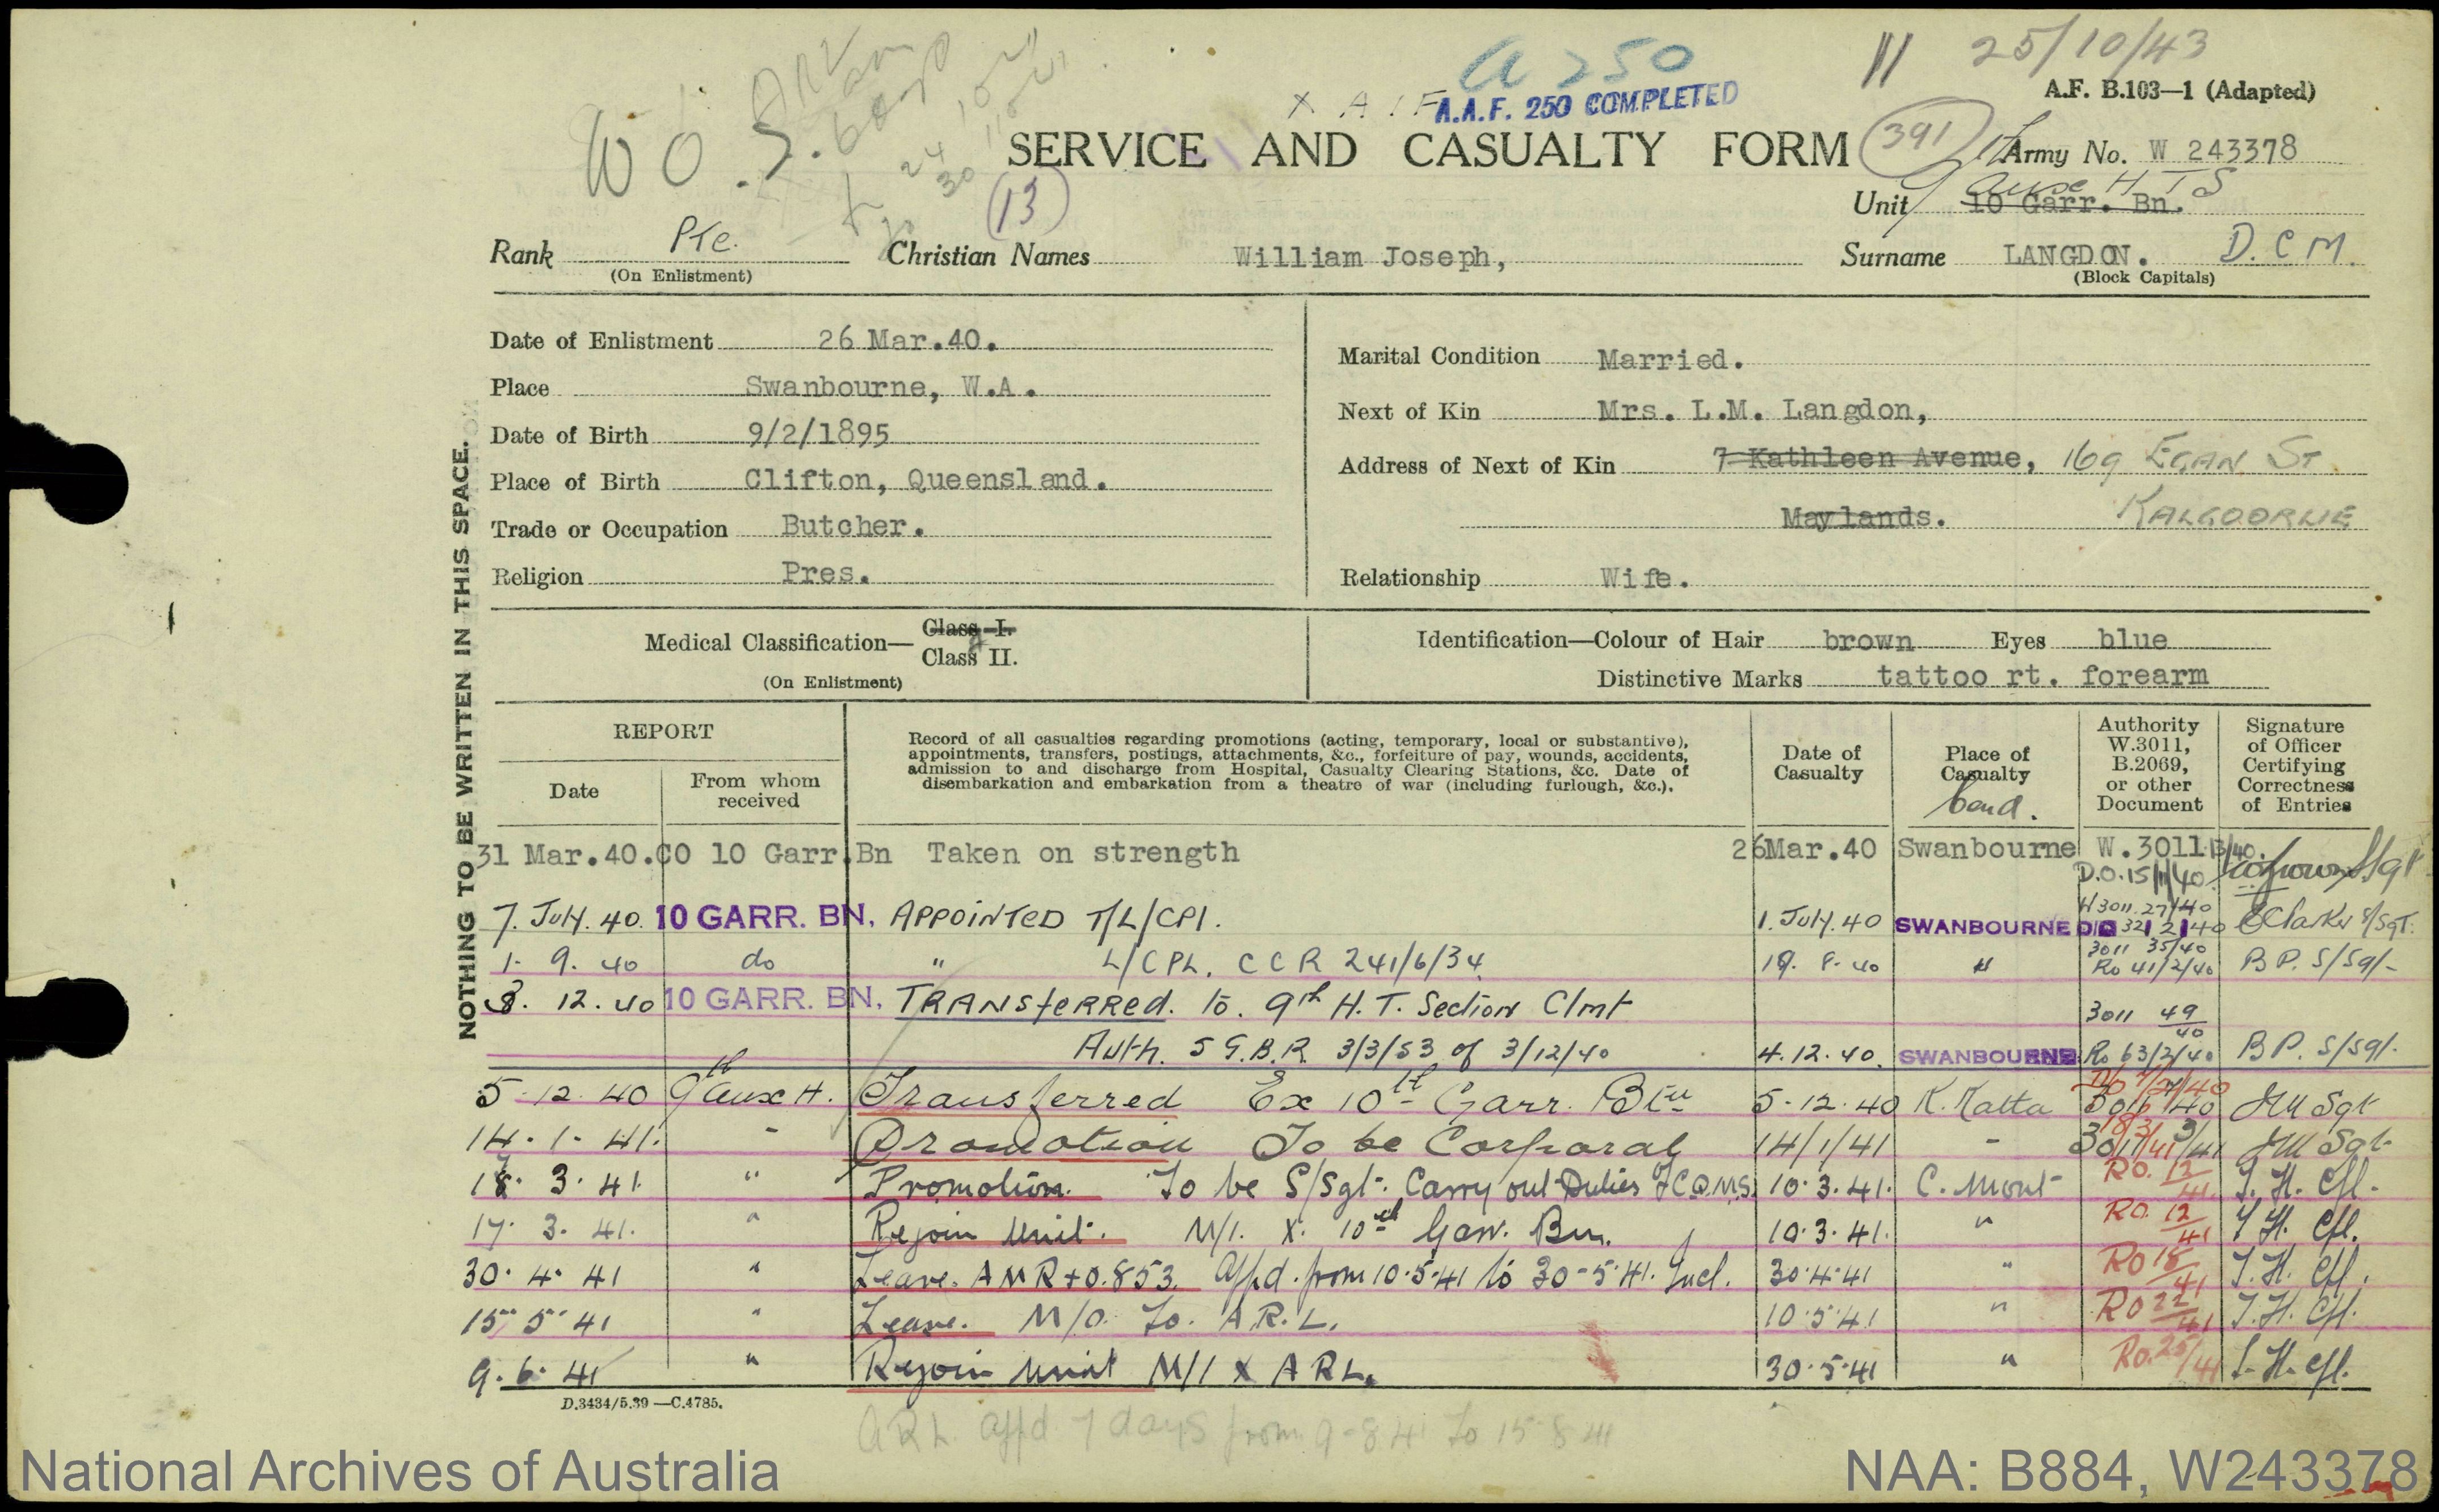 25/10/43
a 250
A.F. B.103—1 (Adapted)
X A I F A.A.F. 250 COMPLETED
W O
SERVICE AND CASUALTY FORM 391 Army No. W 243378
(13)
Aux H T S
Unit 10 Garr. Bn.
Rank Pte. Christian Names William Joseph, Surname LANGDON. D.C.M.
(On Enlistment) (Block Capitals)
Date of Enlistment 26 Mar.40.
Place Swanbourne, W.A.
Date of Birth 9/2/1895
Place of Birth Clifton, Queensland.
Trade or Occupation Butcher.
Religion Pres.
Marital Condition Married.
Next of Kin Mrs. L.M. Langdon,
Address of Next of Kin 7 Kathleen Avenue, 169 EGAN ST
Maylands. KALGOORLIE
Relationship Wife.
Medical Classification— Class I.
Class II.
(On Enlistment)
Identification—Colour of Hair brown Eyes blue
Distinctive Marks tattoo rt. forearm
NOTHING TO BE WRITTEN IN THIS SPACE.
REPORT
Date
From whom received
Record of all casualties regarding promotions (acting, temporary, local or substantive),
appointments, transfers, postings, attachments, &c., forfeiture of pay, wounds, accidents,
admission to and discharge from Hospital, Casualty Clearing Stations, &c. Date of
disembarkation and embarkation from a theatre of war (including furlough, &c.).
Date of Casualty
Place of Casualty
Authority W.3011, B.2069, or other Document
Signature of Officer Certifying Correctness of Entries
31 Mar.40. CO 10 Garr.Bn Taken on strength 26Mar.40 Swanbourne W.3011 13/40.
D.O.15/11/40 S/Sgt
7. July. 40. 10 GARR. BN. APPOINTED T/L/CPl. 1. July. 40 SWANBOURNE W3011 27/40 D/O 32/2/40 E Clarke S/Sgt.
1. 9. 40 do " L/CPL. CCR 241/6/34 19. 8. 40 " 3011 35/40 Ro 41/2/40 B P. S/Sgt
3. 12. 40 10 GARR. BN. TRANSFERRED. to. 9th H.T. Section Clmt 3011 49/40
Auth. 5 G.B.R. 3/3/53 of 3/12/40 4.12.40. SWANBOURNE Ro 63/2/40 B P. S/Sgt.
5. 12. 40 9th Aux H. Transferred Ex 10th Garr. Btn 5.12.40 K. Katta Sgt
14. 1. 41. " Promotion To be Corporal 14/1/41 " Sgt
17. 3. 41. " Promotion. To be S/Sgt. Carry out Duties of C.Q.M.S. 10.3.41. C. Mont RO. 12/41. J. H. Cpl.
17. 3. 41. " Rejoin Unit. M/I. X. 10th Garr. Bn. 10.3.41. " RO. 12/41 J. H. Cpl.
30. 4. 41 " Leave. AMR+O.853. Affd. from 10.5.41 to 30-5.41. Incl. 30.4.41 " RO 18/41 J. H. Cpl.
15 5 41 " Leave. M/O. To. A.R.L. 10.5.41 " RO 22/41 J. H. Cpl.
9. 6. 41 " Rejoin Unit M/I X A R L. 30.5.41 " Ro. 25/41 J. H. Cpl.
D.3434/5.39 —C.4785.
A R L. affd 7 days from 9-8-41 to 15-8-41
National Archives of Australia
NAA: B884, W243378